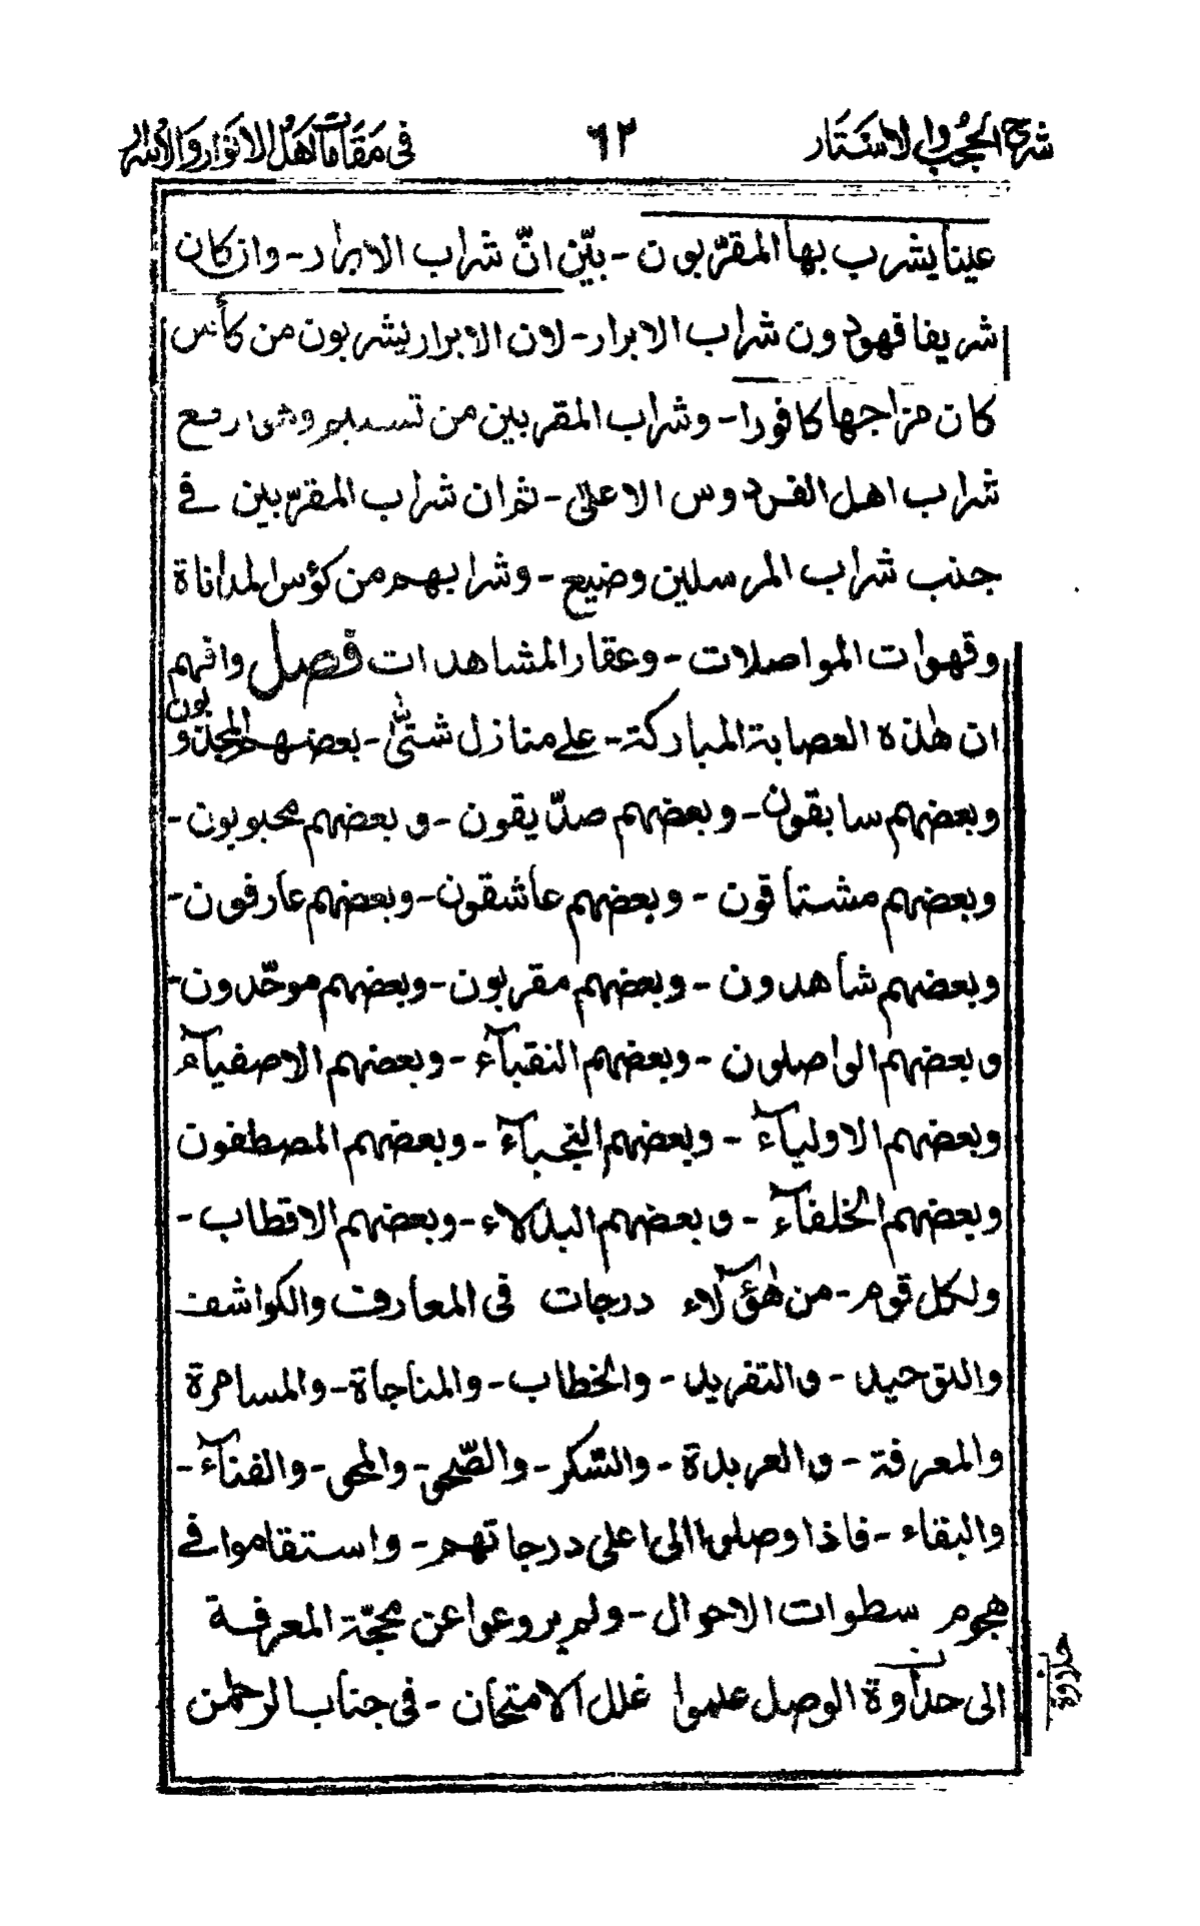 شرح الحجب والاستار ٦٢ فى مقامات اهل الانوار والاسرار
عينا يشرب بها المقرّبون - بيّن انّ شراب الابرار - وان كان
شريفا فهو دون شراب الابرار - لان الابرار يشربون من كأس
كان مزاجها كافورا - وشراب المقربين من تسنيم وهى ارفع
شراب اهل الفردوس الاعلى - ثم ان شراب المقرّبين فى
جنب شراب المرسلين وضيع - وشرابهم من كؤس المداناة
وقهوات المواصلات - وعقار المشاهدات فصل وافهم
ان هٰذه العصابة المباركة - على منازل شتّى - بعضهم المجذوبون
وبعضهم سابقون - وبعضهم صدّيقون - وبعضهم محبوبون -
وبعضهم مشتاقون - وبعضهم عاشقون - وبعضهم عارفون -
وبعضهم شاهدون - وبعضهم مقربون - وبعضهم موحّدون -
وبعضهم الواصلون - وبعضهم النقبآء - وبعضهم الاصفيآء
وبعضهم الاوليآء - وبعضهم النجبآء - وبعضهم المصطفون
وبعضهم الخلفآء - وبعضهم البدلاء - وبعضهم الاقطاب -
ولكل قوم - من هٰؤلآء درجات فى المعارف والكواشف
والتوحيد - والتفريد - والخطاب - والمناجاة - والمسامرة
والمعرفة - والعربدة - والسّكر - والصّحو - والمحو - والفنآء -
والبقاء - فاذا وصلوا الى اعلى درجاتهم - واستقاموا فى
هجوم سطوات الاحوال - ولم يروعوا عن محجّة المعرفة
الى حدأوة الوصل علموا غلل الامتحان - فى جناب الرحمٰن